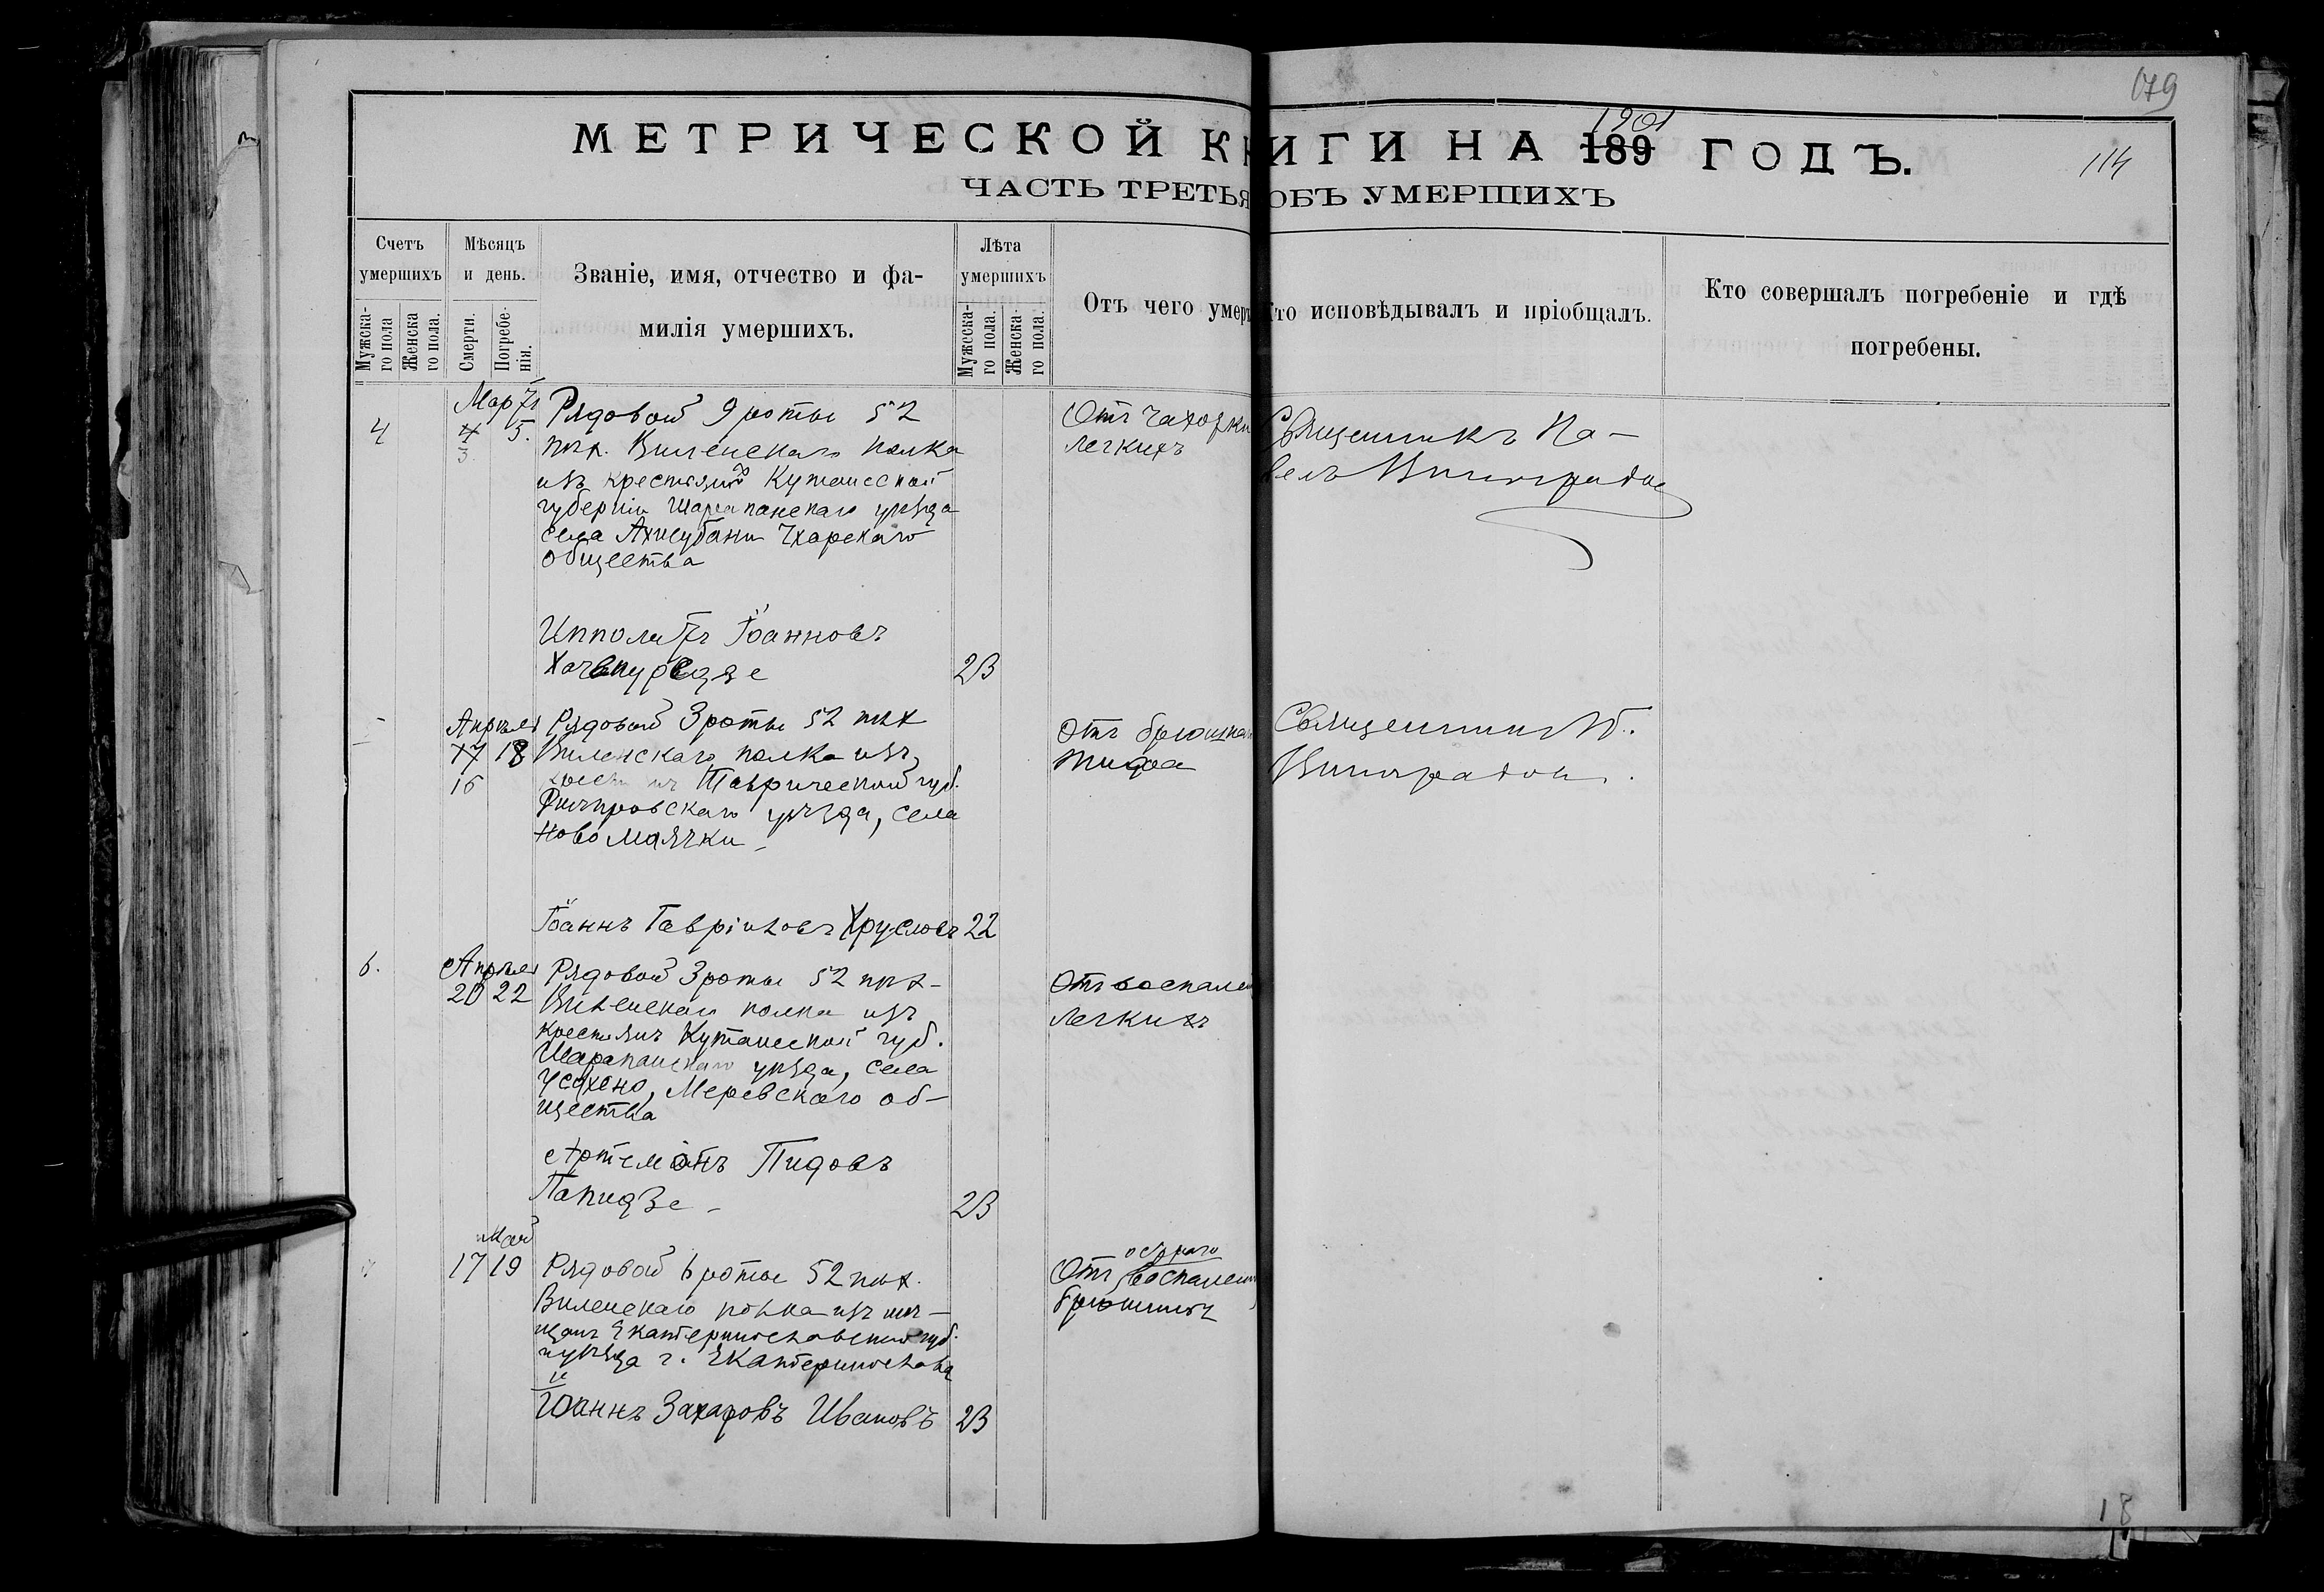 179
МЕТРИЧЕСКОЙ КНИГИ НА 189 ГОДЪ.
1901
114
ЧАСТЬ ТРЕТЬЯ ОБЪ УМЕРШИХЪ
Счетъ умершихъ
Мужска-го пола
Женска го пола.
Мѣсяцъ и день.
Смерти.
Погребе-нія.
Званіе, имя, отчество и фа-
милія умершихъ.
Лѣта умершихъ
Мужеска-го пола.
Женска-го пола.
Отъ чего умер
Кто исповѣдывалъ и пріобщалъ.
Кто совершалъ погребеніе и гдѣ
погребены.
Мартъ
4
4 5.
3
Рядовой 9 роты 52
пѣх. Виленскаго полка
изъ крестьянъ Кутаисской
губерніи Шарапанскаго уѣзда
села Чхарскаго
общества
Ипполитъ Іоанновъ
23
Отъ чахотки
легкихъ
Священникъ Па-
велъ Виноградов
Апрѣля
17 18
16
Рядовой 3 роты 52 пѣх
Виленскаго полка изъ
Таврической губ.
Днѣпровскаго уѣзда, села
Ново Маячки
Іоаннъ Гавріиловъ Хрусловъ 22
Отъ брюшна
тифа
Священник П.
Виноградов.
6.
Апрѣля
20 22
Рядовой 3 роты 52 пѣх-
Виленскаго полка изъ
крестьянъ Кутаисской губ.
Шарапанскаго уѣзда, села
Меревскаго об-
щества
Артемонъ Пидовъ
Папидзе -
23
Отъ воспален
легкихъ
Май
17 19
Рядовой 6 роты 52 пѣх.
Виленскаго полка изъ мѣ-
щанъ Екатеринославской губ.
и уѣзда г. Екатеринослава
Іоаннъ Захаровъ Ивановъ 23
остраго
Отъ воспален
брюшины
18